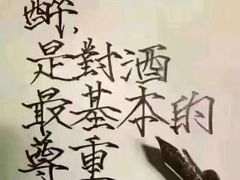 醉,
是對酒
最基本的
尊重